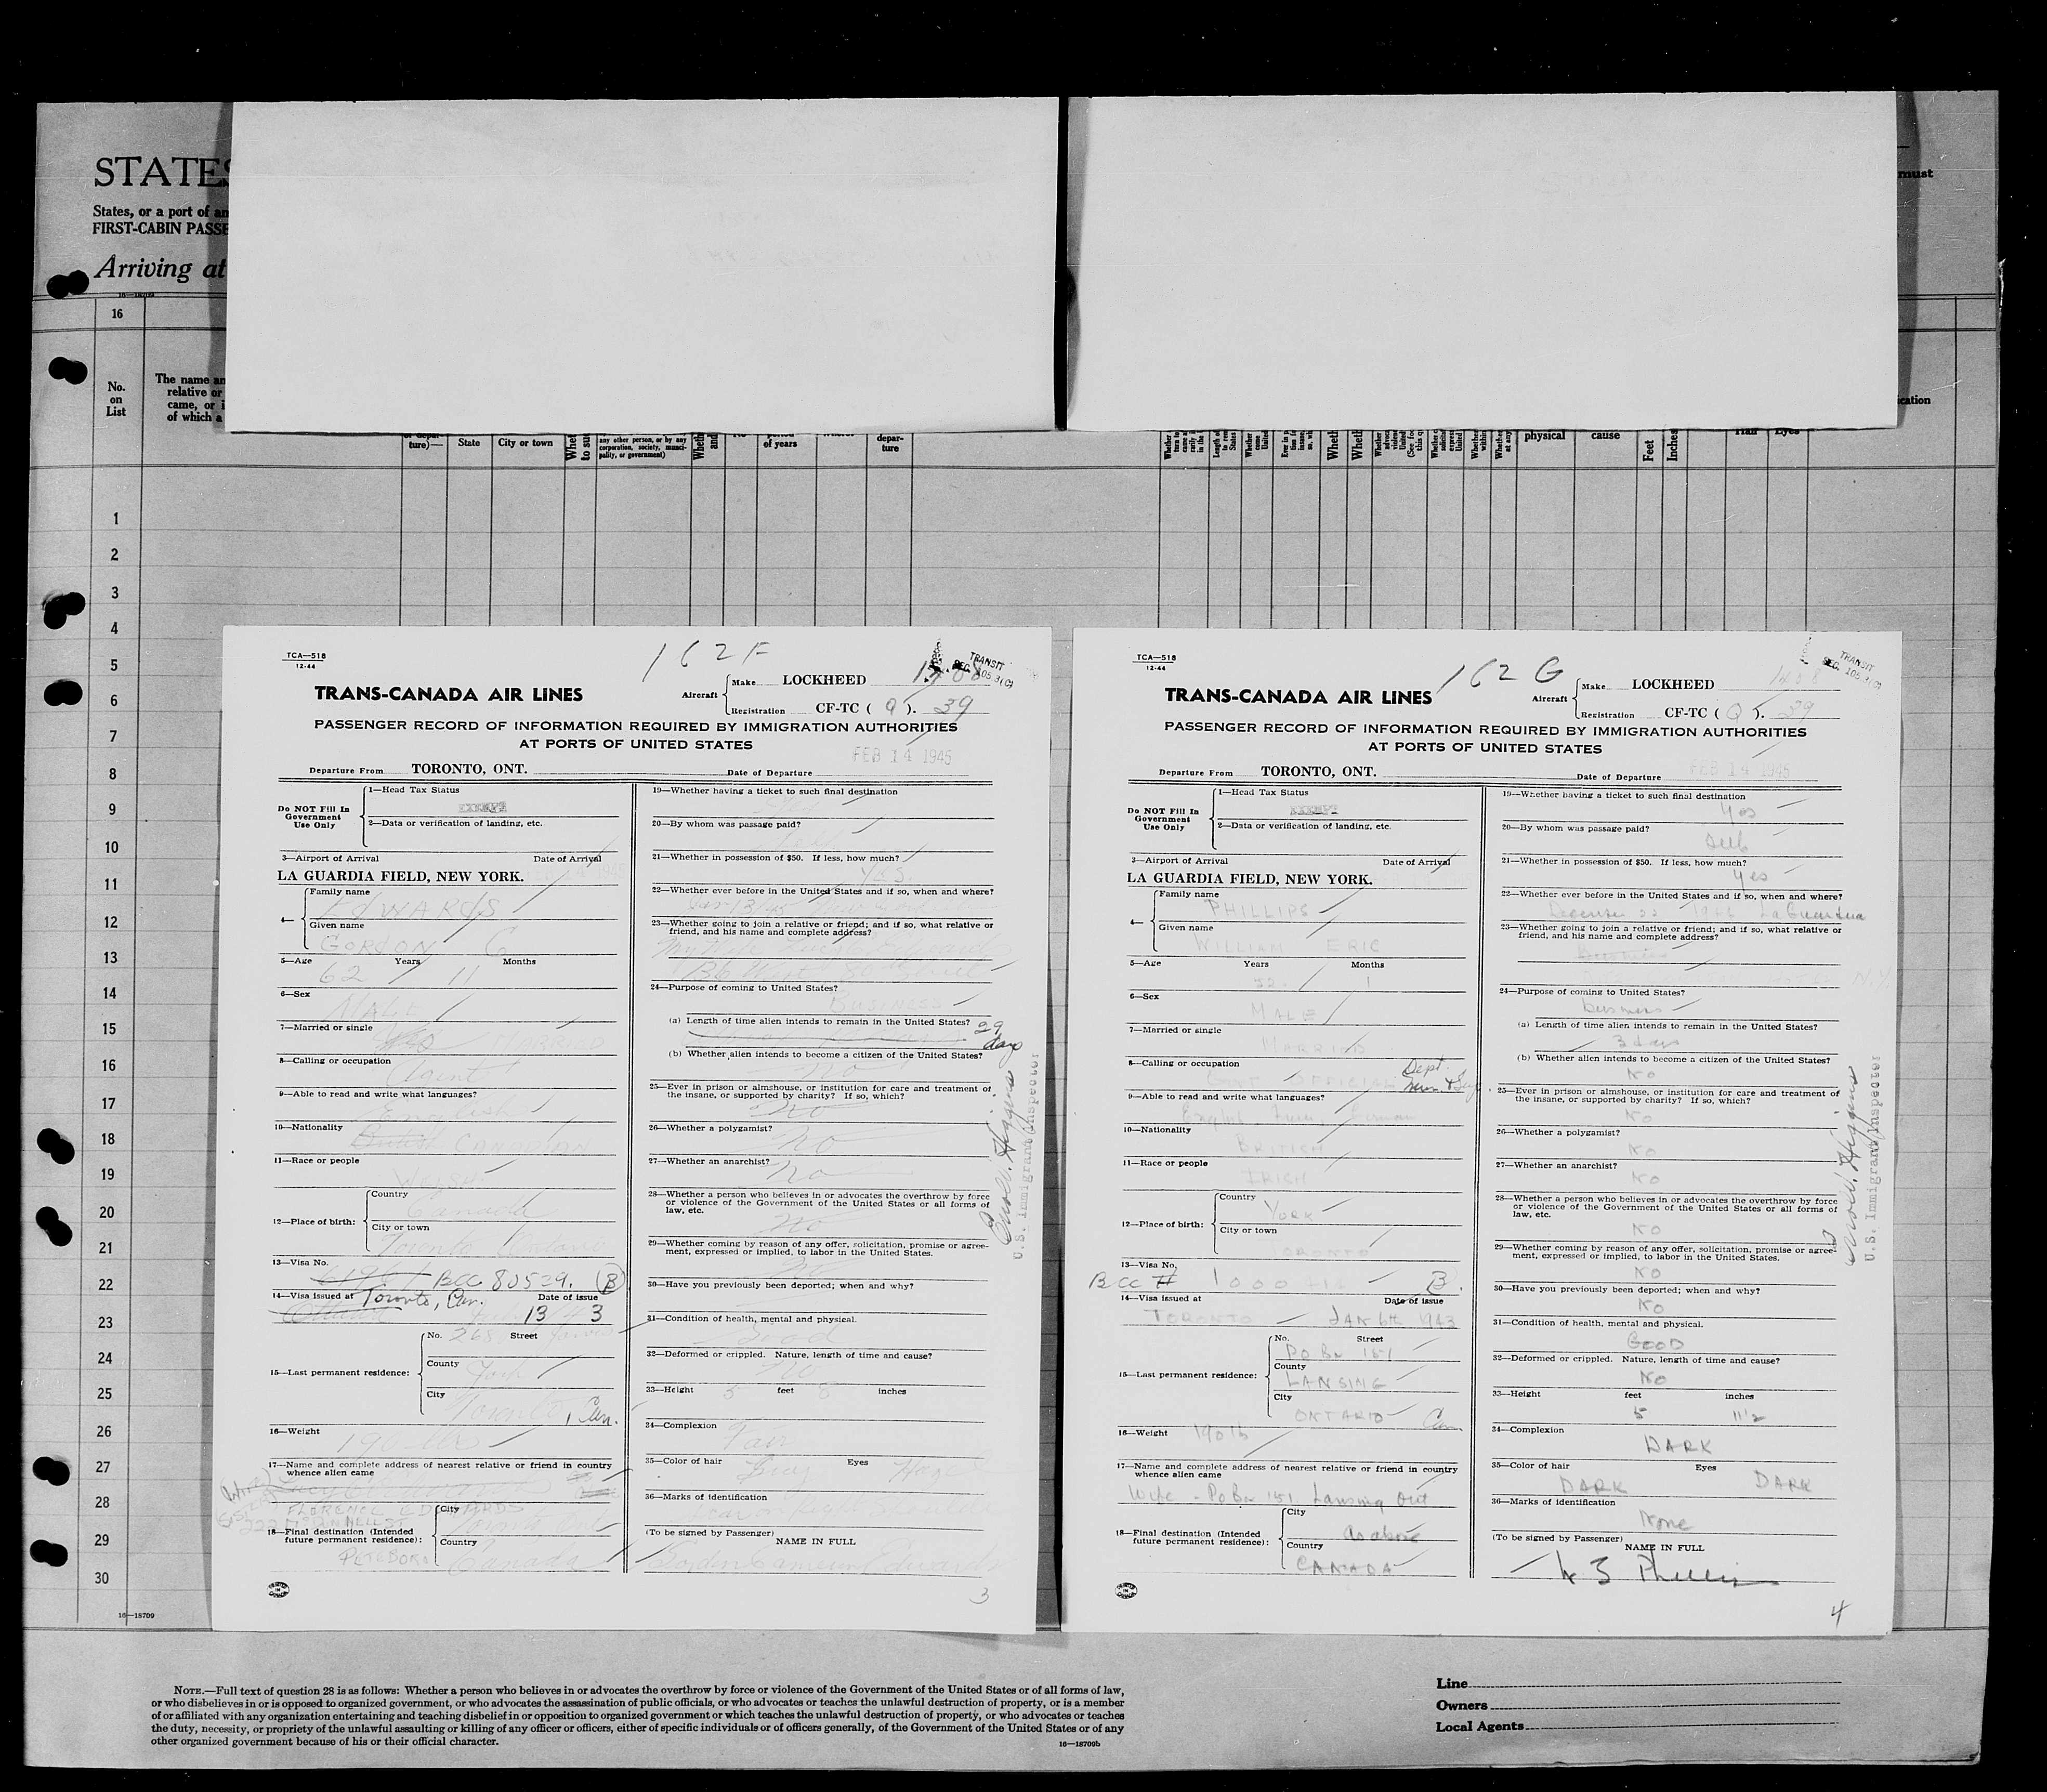 STATES
States, or a port of an
FIRST-CABIN PASSE
Arriving at
must
16
No.
on
List
The name an
relative or
came, or i
of which a
ture)—
State
City or town
any other person, or by any
corporation, society, munici-
pality, or government)
of years
depar-
ture
physical
cause
Feet
Inches
Eyes
1
2
3
4
5
6
7
8
9
10
11
12
13
14
15
16
17
18
19
20
21
22
23
24
25
26
27
28
29
30
16—18709
TCA—518
12-44
162F
TRANS-CANADA AIR LINES
Aircraft
Make LOCKHEED
Registration CF-TC ( Q ). 39
PASSENGER RECORD OF INFORMATION REQUIRED BY IMMIGRATION AUTHORITIES
AT PORTS OF UNITED STATES
FEB 14 1945
Departure From TORONTO, ONT. Date of Departure
Do NOT Fill In
Government
Use Only
1—Head Tax Status
EXEMPT
2—Data or verification of landing, etc.
3—Airport of Arrival Date of Arrival
LA GUARDIA FIELD, NEW YORK.
4—
Family name
EDWARDS
Given name
GORDON C
5—Age Years Months
62 11
6—Sex
MALE
7—Married or single
8—Calling or occupation
Agent
9—Able to read and write what languages?
English
10—Nationality
CANADIAN
11—Race or people
WELSH
12—Place of birth:
Country
Canada
City or town
Toronto Ontario
13—Visa No.
BCC 80529. B
14—Visa issued at Toronto, Can. Date of issue
13 3
15—Last permanent residence:
No. 268 Street
County
York
City
Toronto, Can.
16—Weight
190
17—Name and complete address of nearest relative or friend in country
whence alien came
FLORENCE EDWARDS
18—Final destination (Intended
future permanent residence):
City
Country
Canada
PETEBORO
19—Whether having a ticket to such final destination
20—By whom was passage paid?
21—Whether in possession of $50. If less, how much?
YES.
22—Whether ever before in the United States and if so, when and where?
23—Whether going to join a relative or friend; and if so, what relative or
friend, and his name and complete address?
24—Purpose of coming to United States?
Business
(a) Length of time alien intends to remain in the United States?
29
days
(b) Whether alien intends to become a citizen of the United States?
No
25—Ever in prison or almshouse, or institution for care and treatment of
the insane, or supported by charity? If so, which?
No
26—Whether a polygamist?
No
27—Whether an anarchist?
No
28—Whether a person who believes in or advocates the overthrow by force
or violence of the Government of the United States or all forms of
law, etc.
No
29—Whether coming by reason of any offer, solicitation, promise or agree-
ment, expressed or implied, to labor in the United States.
No
30—Have you previously been deported; when and why?
31—Condition of health, mental and physical.
Good
32—Deformed or crippled. Nature, length of time and cause?
No
33—Height 5 feet 8 inches
34—Complexion
Fair
35—Color of hair Grey Eyes Hazel
36—Marks of identification
(To be signed by Passenger)
NAME IN FULL
3
U.S. Immigrant Inspector
TCA—518
12-44
162 G
TRANSIT
TRANS-CANADA AIR LINES
Aircraft
Make LOCKHEED
Registration CF-TC ( Q ). 39
PASSENGER RECORD OF INFORMATION REQUIRED BY IMMIGRATION AUTHORITIES
AT PORTS OF UNITED STATES
FEB 14 1945
Departure From TORONTO, ONT. Date of Departure
Do NOT Fill In
Government
Use Only
1—Head Tax Status
EXEMPT
2—Data or verification of landing, etc.
3—Airport of Arrival Date of Arrival
LA GUARDIA FIELD, NEW YORK.
4—
Family name
PHILLIPS
Given name
WILLIAM ERIC
5—Age Years Months
52 1
6—Sex
MALE
7—Married or single
MARRIED
8—Calling or occupation
OFFICIAL
Dept
9—Able to read and write what languages?
10—Nationality
BRITISH
11—Race or people
IRISH
12—Place of birth:
Country
YORK
City or town
TORONTO
13—Visa No.
BCC # B
14—Visa issued at Date of issue
TORONTO JAN 6th 1943
15—Last permanent residence:
No. Street
PO Box 151
County
LANSING
City
ONTARIO Can
16—Weight 190 lb
17—Name and complete address of nearest relative or friend in country
whence alien came
Wife - PO Box 151 Lansing Ont
18—Final destination (Intended
future permanent residence):
City
As above
Country
CANADA
19—Whether having a ticket to such final destination
Yes
20—By whom was passage paid?
Self
21—Whether in possession of $50. If less, how much?
Yes
22—Whether ever before in the United States and if so, when and where?
December 22 LaGuardia
23—Whether going to join a relative or friend; and if so, what relative or
friend, and his name and complete address?
N.Y.
24—Purpose of coming to United States?
Business
(a) Length of time alien intends to remain in the United States?
3 days
(b) Whether alien intends to become a citizen of the United States?
No
25—Ever in prison or almshouse, or institution for care and treatment of
the insane, or supported by charity? If so, which?
No
26—Whether a polygamist?
No
27—Whether an anarchist?
No
28—Whether a person who believes in or advocates the overthrow by force
or violence of the Government of the United States or all forms of
law, etc.
No
29—Whether coming by reason of any offer, solicitation, promise or agree-
ment, expressed or implied, to labor in the United States.
No
30—Have you previously been deported; when and why?
No
31—Condition of health, mental and physical.
GOOD
32—Deformed or crippled. Nature, length of time and cause?
No
33—Height feet inches
5 11½
34—Complexion
DARK
35—Color of hair Eyes
DARK DARK
36—Marks of identification
None
(To be signed by Passenger)
NAME IN FULL
Phillips
4
U.S. Immigrant Inspector
NOTE.—Full text of question 28 is as follows: Whether a person who believes in or advocates the overthrow by force or violence of the Government of the United States or of all forms of law,
or who disbelieves in or is opposed to organized government, or who advocates the assassination of public officials, or who advocates or teaches the unlawful destruction of property, or is a member
of or affiliated with any organization entertaining and teaching disbelief in or opposition to organized government or which teaches the unlawful destruction of property, or who advocates or teaches
the duty, necessity, or propriety of the unlawful assaulting or killing of any officer or officers, either of specific individuals or of officers generally, of the Government of the United States or of any
other organized government because of his or their official character.
16—18709b
Line
Owners
Local Agents